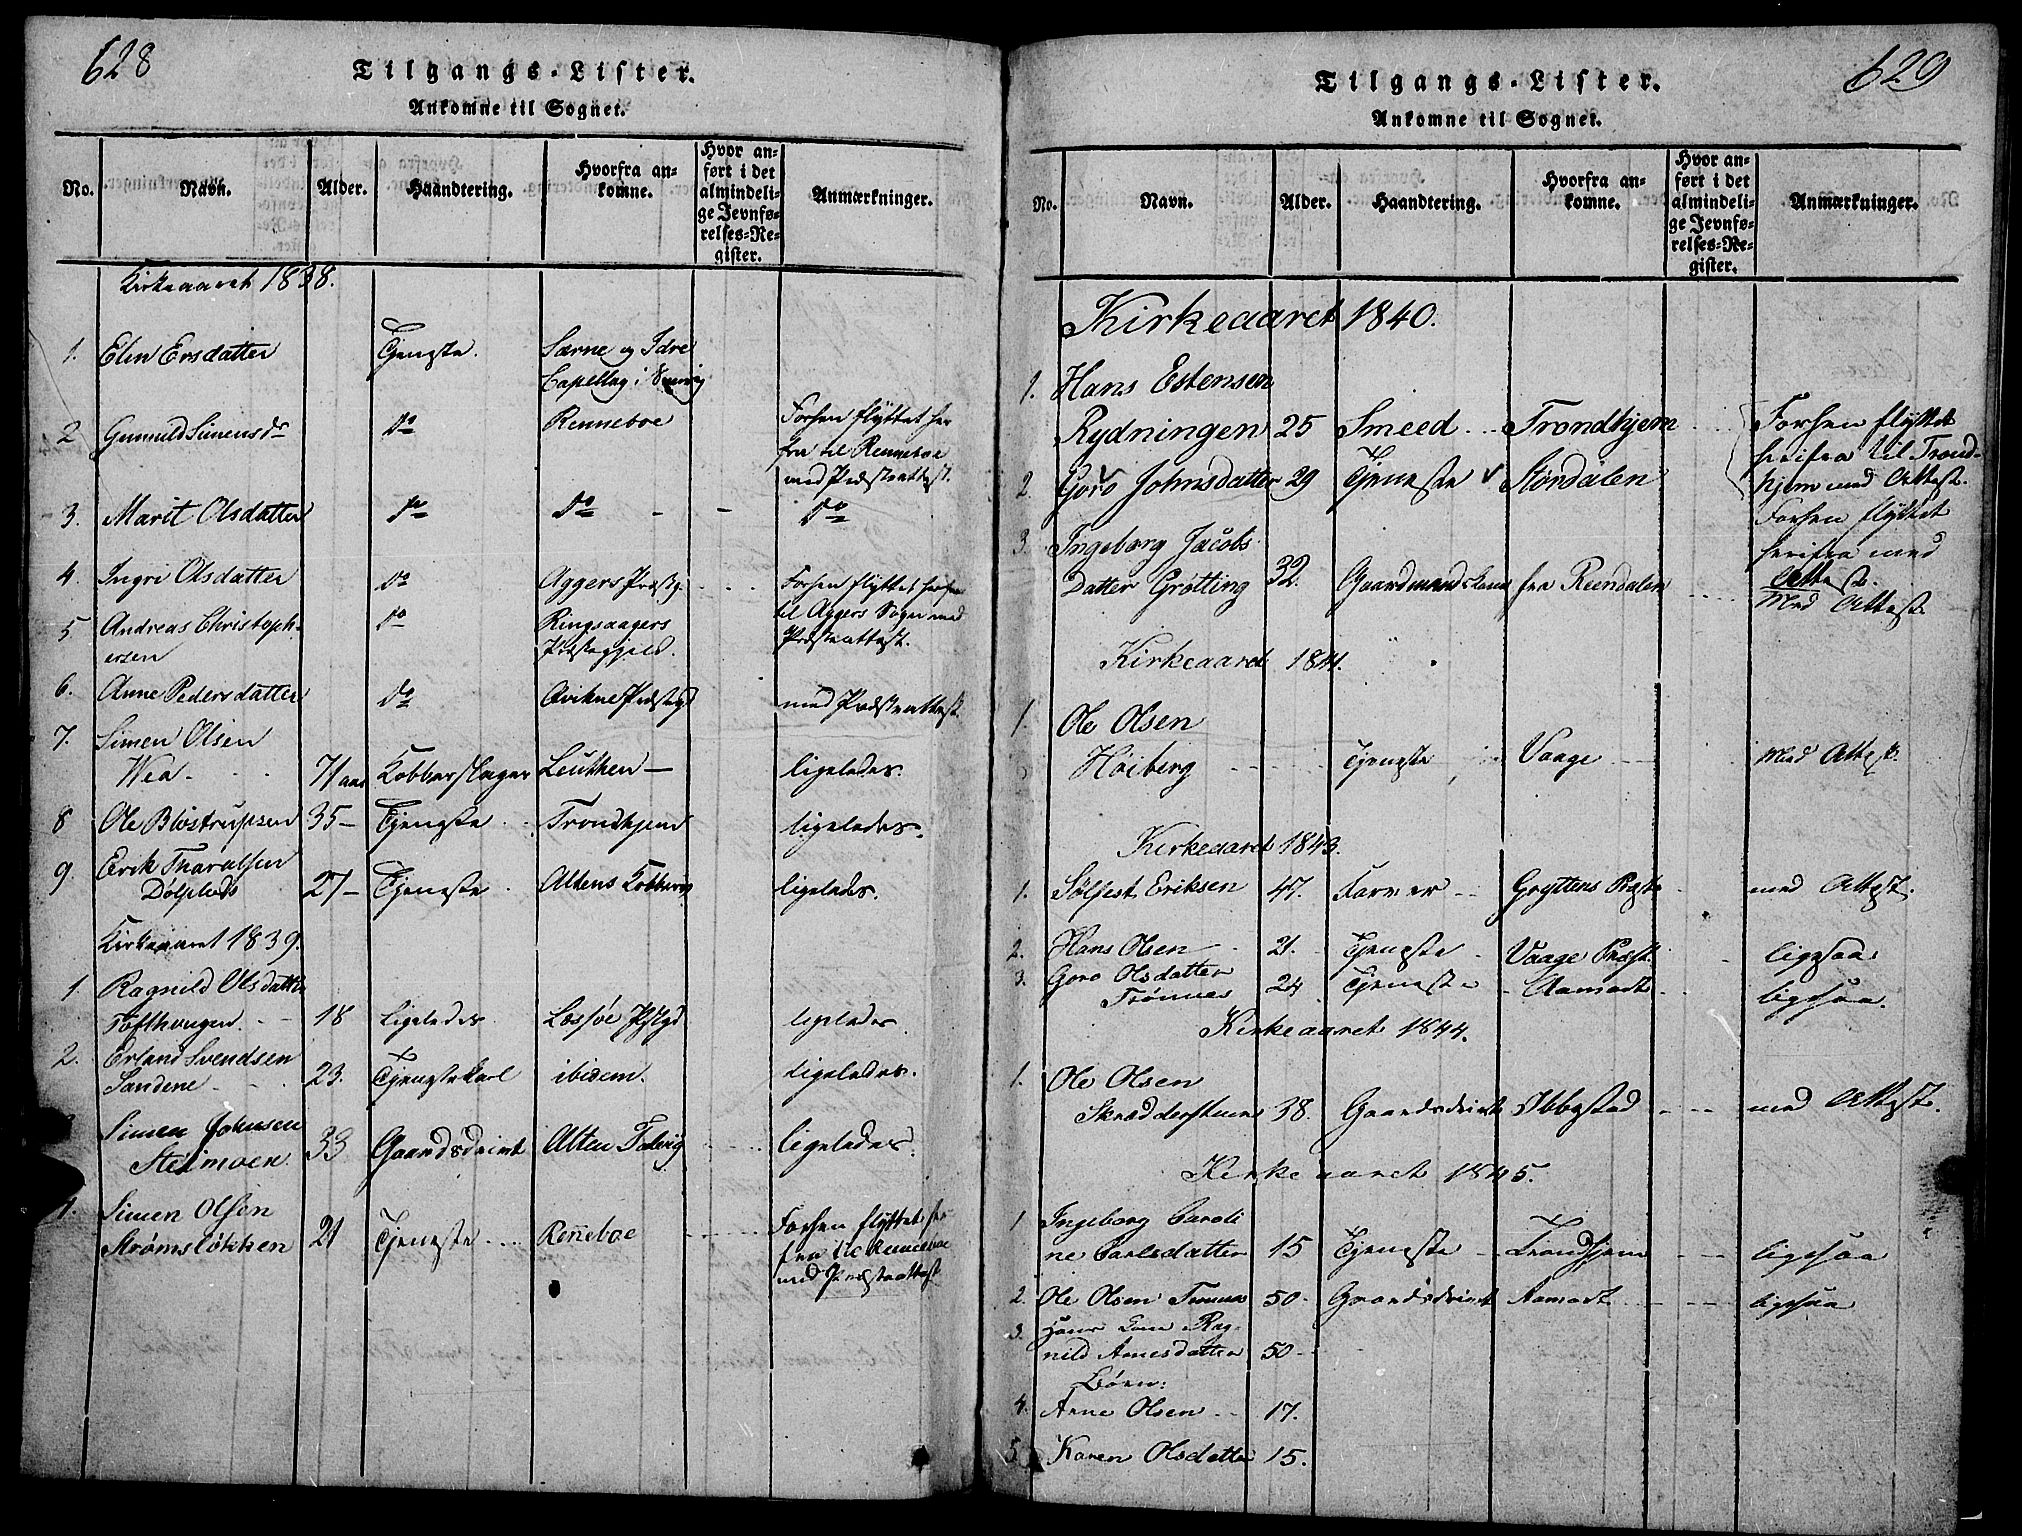 628
Tilgangs-Lister.
Ankomne til Sognet.
No. Navn. Alder. Haandtering. Hvorfra an-komne. Hvor an-ført i det almindeli-ge Jevnfø-relses-Re-gister. Anmærkninger.
Kirkeaaret 1838.
1. Elen Ersdatter Tjeneste. Særne og Idre
Capellag i
2 Gunnild Simens dr do Renneboe Forhen flyttet her
fra til Renneboe
med Præsteattest.
3. Marit Olsdatter do do - - do
4. Ingri Olsdatter do Aggers Præstg. Forhen flyttet herfra
til Aggers Sogn med
Præsteattest.
5 Andreas Christoph- do Ringsaagers
ersen Præstegjeld.
6. Anne Pedersdatter do Qvikne Præstegd med Præsteattest.
7. Simen Olsen
Wea 71 aar Kobberslager Leuthen - ligeledes.
8 Ole Blostrupsen 35 - Tjeneste Trondhjem ligeledes.
9. Erik Tharalsen
Dølplads 27 - Tjeneste Altens Kobberv ligeledes.
Kirkeaaret 1839.
1. Ragnild Olsdatter
Tofthaugen. 18 ligeledes Lessøe Pstgd ligeledes
2. Erland Svendsen
Sandene 23. Tjenestekarl ibidem. ligeledes.
Simen Johnsen
Steimoen. 33 Gaardsdreint Alten Talvig ligeledes.
4. Simen Olsen
Strømsløkken 21 Tjeneste Renneboe Forhen flyttet her
fra til Renneboe
med Præsteattest
629
Tilgangs-Lister.
Ankomne til Sognet.
No. Navn. Alder. Haandtering. Hvorfra an-komne. Hvor an-ført i det almindeli-ge Jevnfø-relses-Re-gister. Anmærkninger.
Kirkeaaret 1840.
1. Hans Estensen
Rydningen 25 Smeed Trondhjem Forhen flyttet
herifra til Trond-
hjem med Attest.
2. Goro Johnsdatter 29 Tjeneste Størdalen
Forhen flyttet
herifra med
Attest.
3. Ingeborg Jacobs-
Datter Grøtting 32. Gaardmandskone fra Reendalen med Attest
Kirkeaaret 1841.
1. Ole Olsen
Høiberg Tjeneste Vaage med Attest.
Kirkeaaret 1843.
1. Solfest Eriksen 47. Farver Gryttens Præst med Attest.
2. Hans Olsen 21. Tjeneste Vaage Præst. ligesaa
3. Goro Olsdatter
Trønnes 24 Tjeneste Aamodt ligesaa.
Kirkeaaret 1844.
1. Ole Olsen
Skrædderstuen 38. Gaardsdreint Ibbestad med Attest.
Kirkeaaret 1845.
1 Ingeborg Caroli
ne Carlsdatter 15 Tjeneste Trondhjem ligesaa
2. Ole Olsen Trønnes 50. Gaardsdreint Aamodt ligesaa
3. Hans Kone Rag-
nild Arnesdatter 50
Børn:
4. Arne Olsen 17.
5. Karen Olsdatter 15.